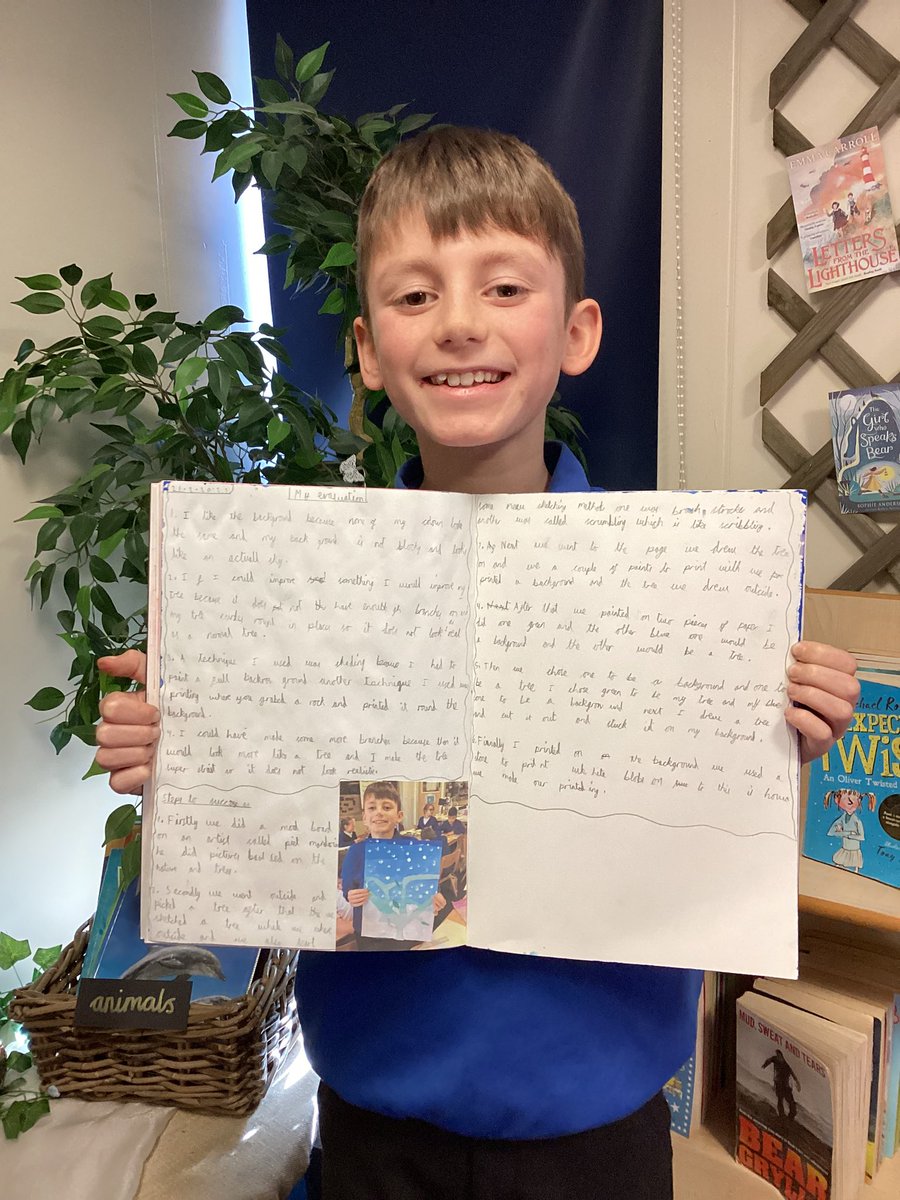 My evaluation
I like the background because none of my colour look
the same and my back ground is not blocky and look
like an actuall sky.
2. I f I could improve something I would improve my
tree because it does not the have enough branches
my tree round in place so it does not look
as a normal tree.
3. A technique I used was because I had to
paint a full backon ground another technique I used was
printing where you grabed a rock and printed it round the
background.
4. I could have make some more branches because then it
would look more like a tree and I make the tree
super so it does not look realistic.
Steps to success
1. Firstly we did a mod bord
on an artist called piet
he did pictures on the
nature and trees.
2. Secondly we went outside and
picked a tree after that the we
sketched a tree while we where
outside and we also
some new sketching methods one was strokes and
another was called scrumbling which is like scribbling.
3. Next we went to the page we drew the tree
on and we a couple of paints to print with we
printed a background and the tree we drew outside.
4. After that we painted on two pieces of paper I
did one green and the other blue one would be
a background and the other would be a tree.
5. Then we chose one to be a background and one to
be a tree I chose green to be my tree and my blue
one to be a background next I drew a tree
and cut it out and stuck it on my background.
6. Finally I printed on the background we used a
stone to print white blobs on to this is how
we make our printed
EMMA CARROLL
LETTERS
FROM THE
LIGHTHOUSE
The
Girl
who
Speaks
Bear
SOPHIE ANDERSON
An Oliver Twisted
animals
MUD, SWEAT AND TEARS
BEAR
GRYLLS